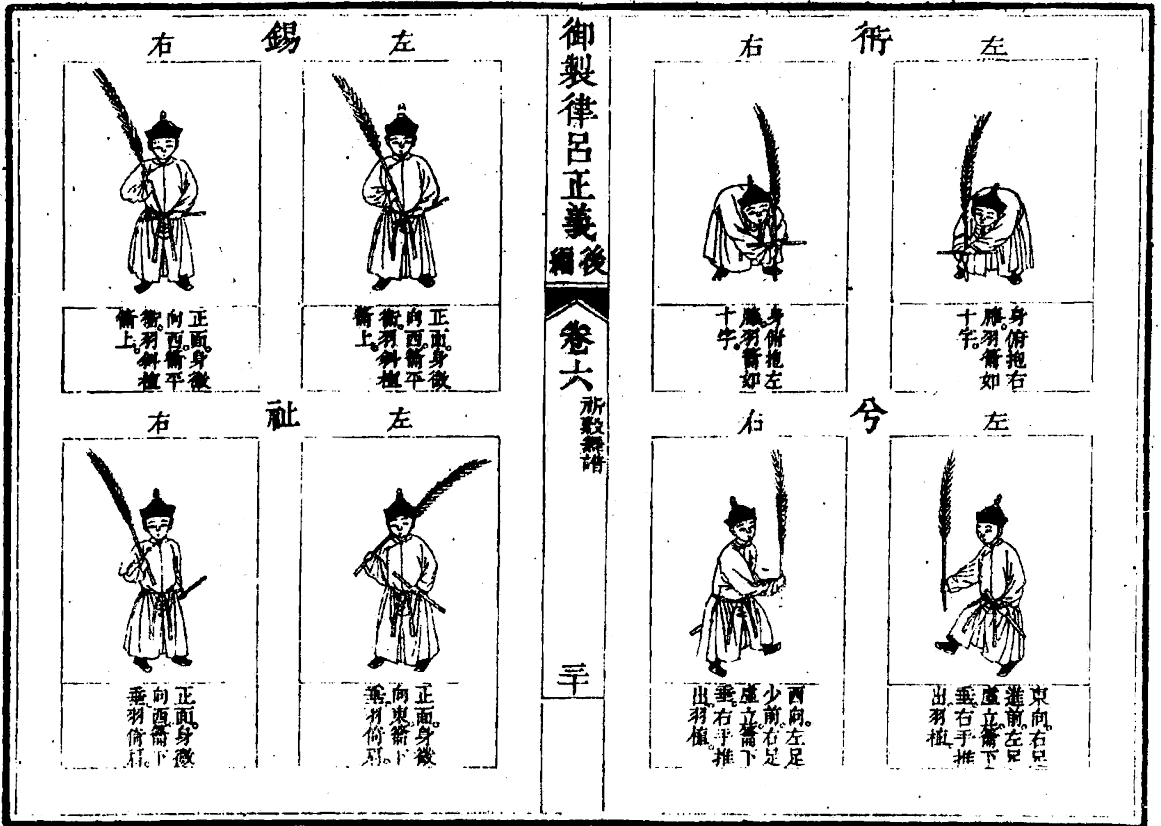 衎
左
身俯抱右
膝。羽籥如
十字。
右
身俯抱左
膝。羽籥如
十字。
兮
左
東向。右足
進前。左足
虛立。籥下
垂。右手推
出。羽植。
右
西向。左足
少前。右足
虛立。籥下
垂。右手推
出。羽植。
御製律呂正義後編
卷六
祈穀舞譜
三十
錫
左
正面。身微
向西。籥平
衡。羽斜植
籥上。
右
正面。身微
向西。籥平
衡。羽斜植
籥上。
祉
左
正面。身微
向東。籥下
垂。羽倚肩。
右
正面。身微
向西。籥下
垂。羽倚肩。